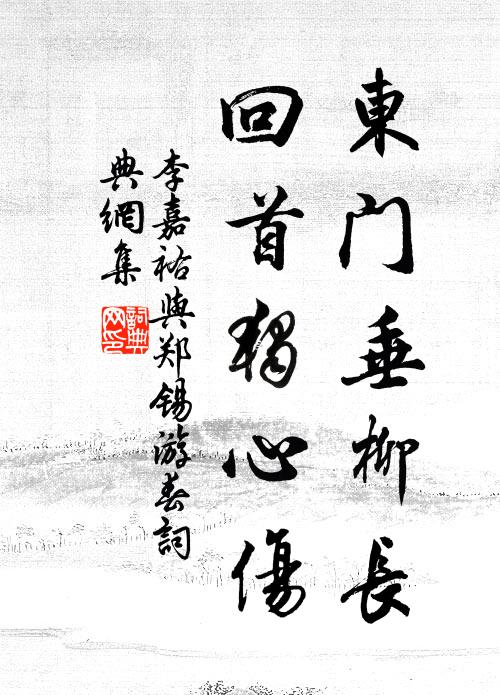 東门垂柳長
回首獨心傷
李嘉祐與郑锡游春詞
典網集
詞典网印